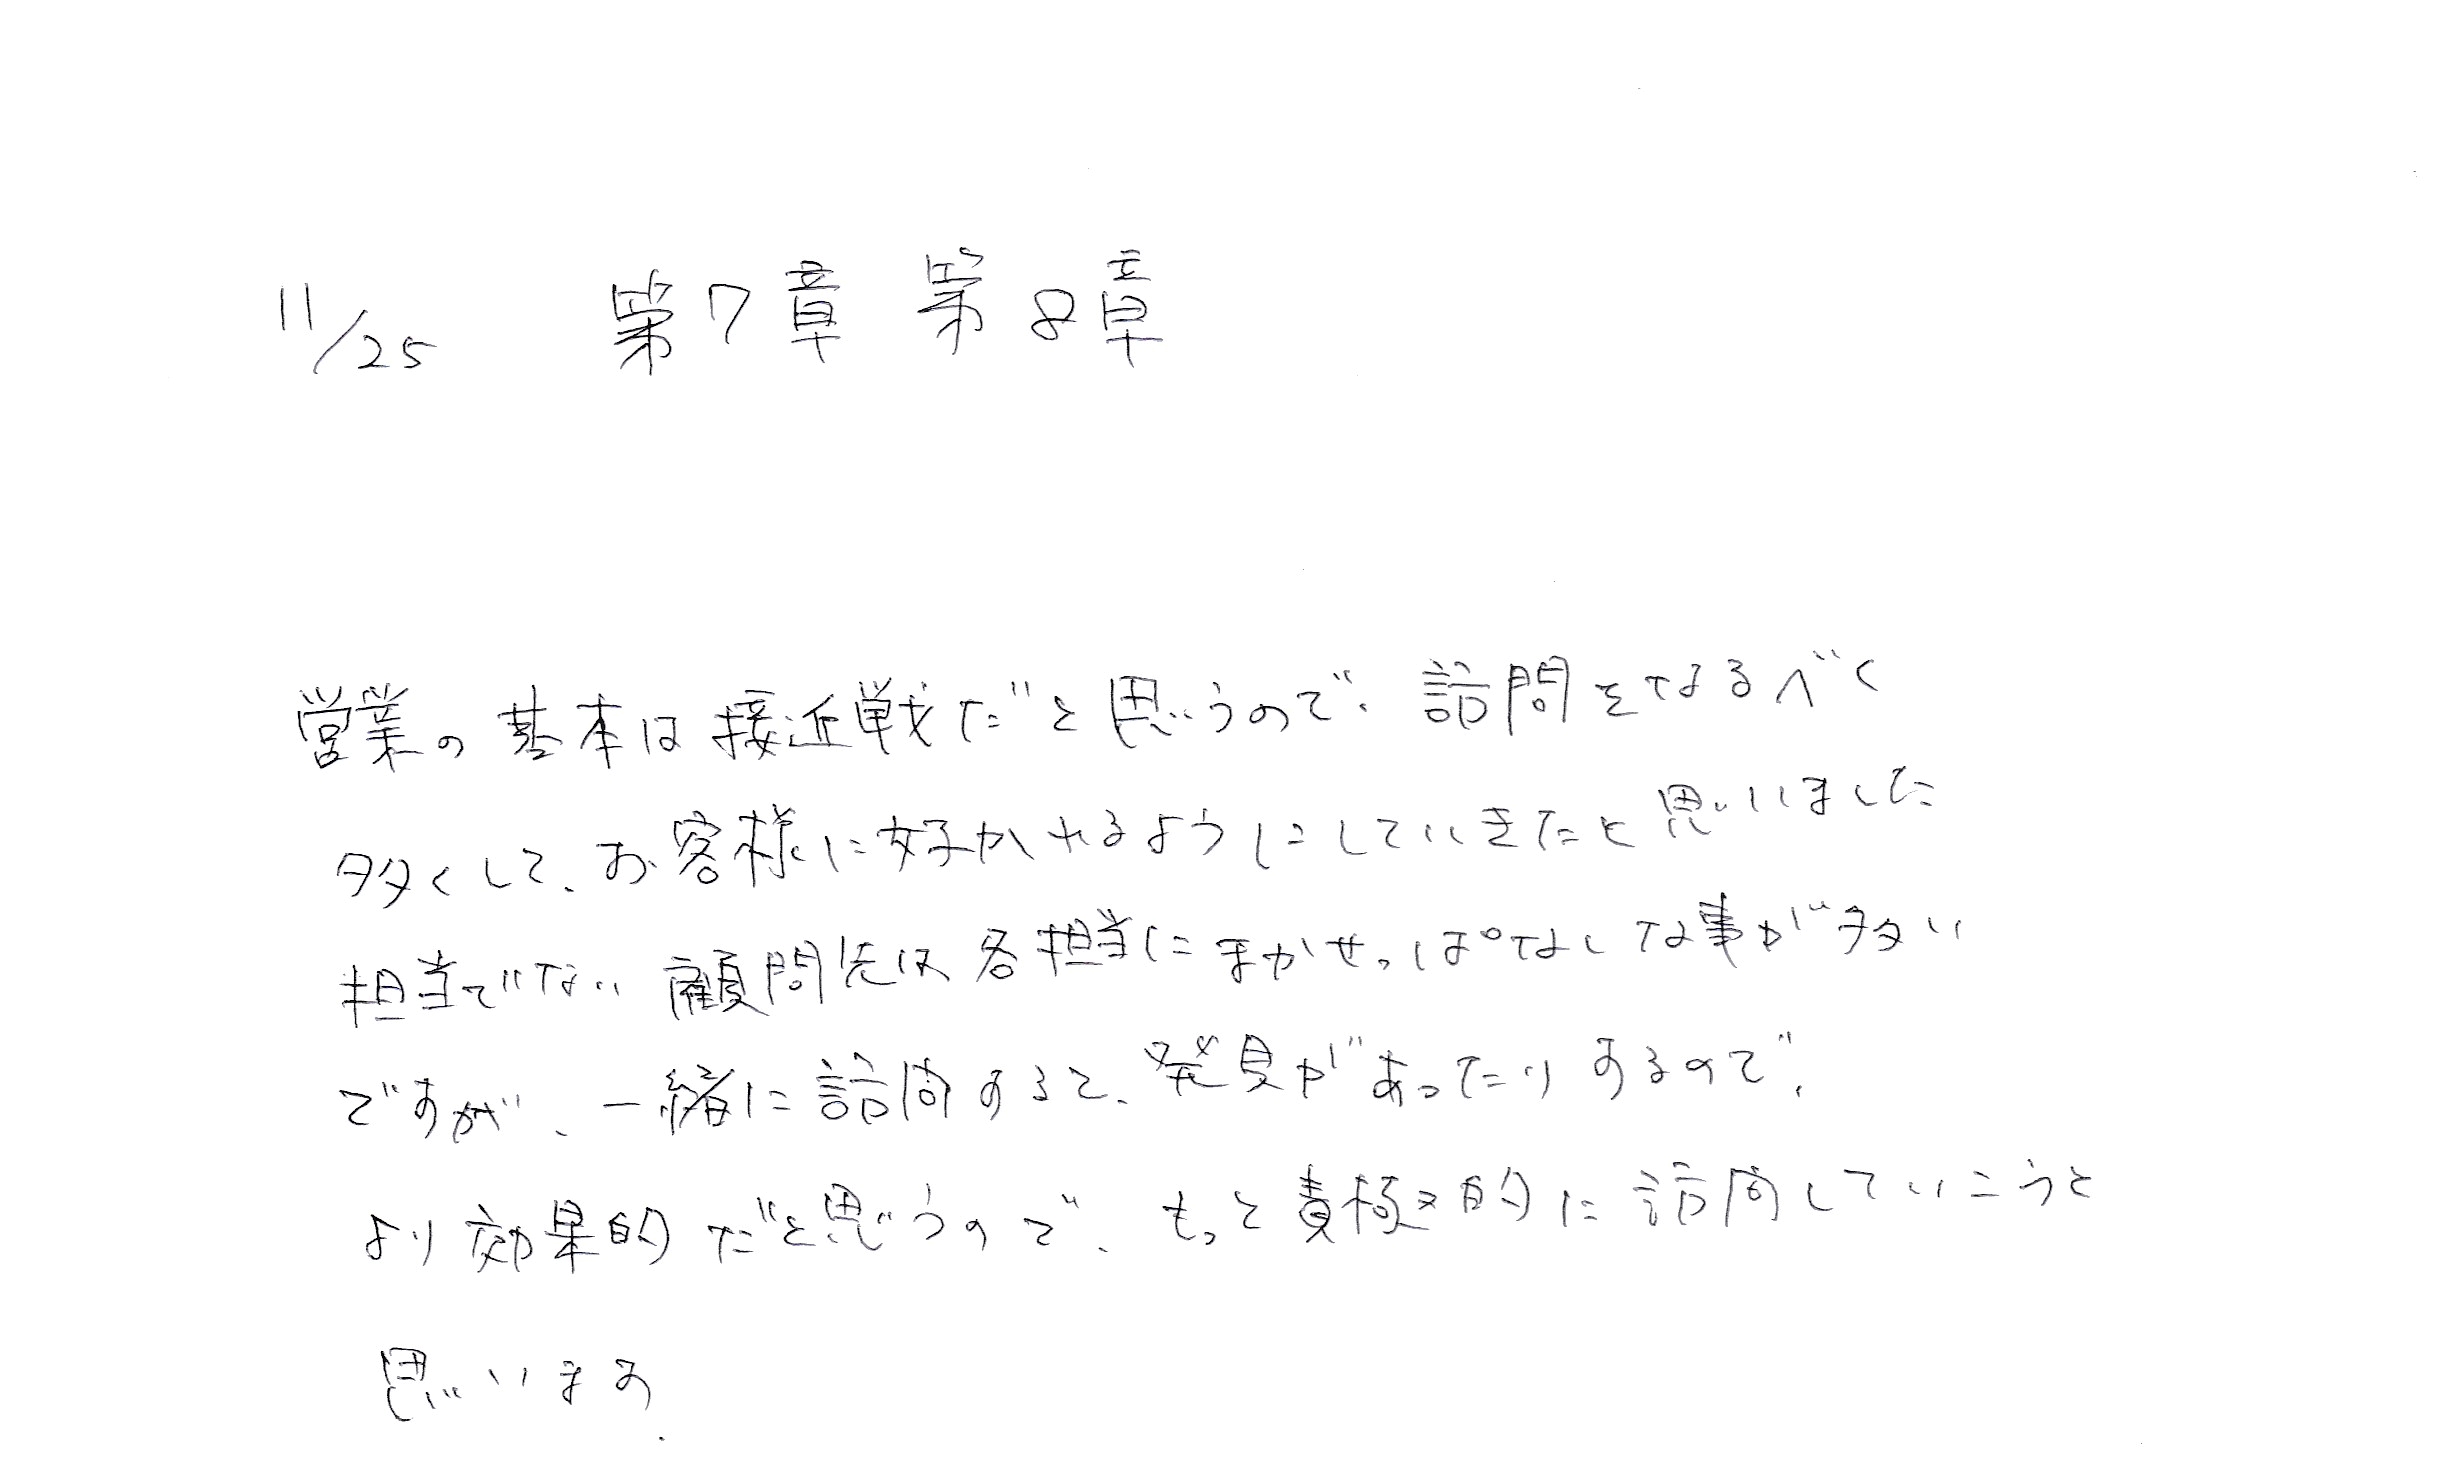 11/25 第7章 第8章
営業の基本は接近戦だと思うので、訪問をなるべく
多くして、お客様に好かれるようにしていきたと思いました
担当でない顧問先は各担当にまかせっぱなしな事が多い
ですが、一緒に訪問すると、発見があったりするので、
より効果的だと思うので、もっと責極的に訪問していこうと
思います.